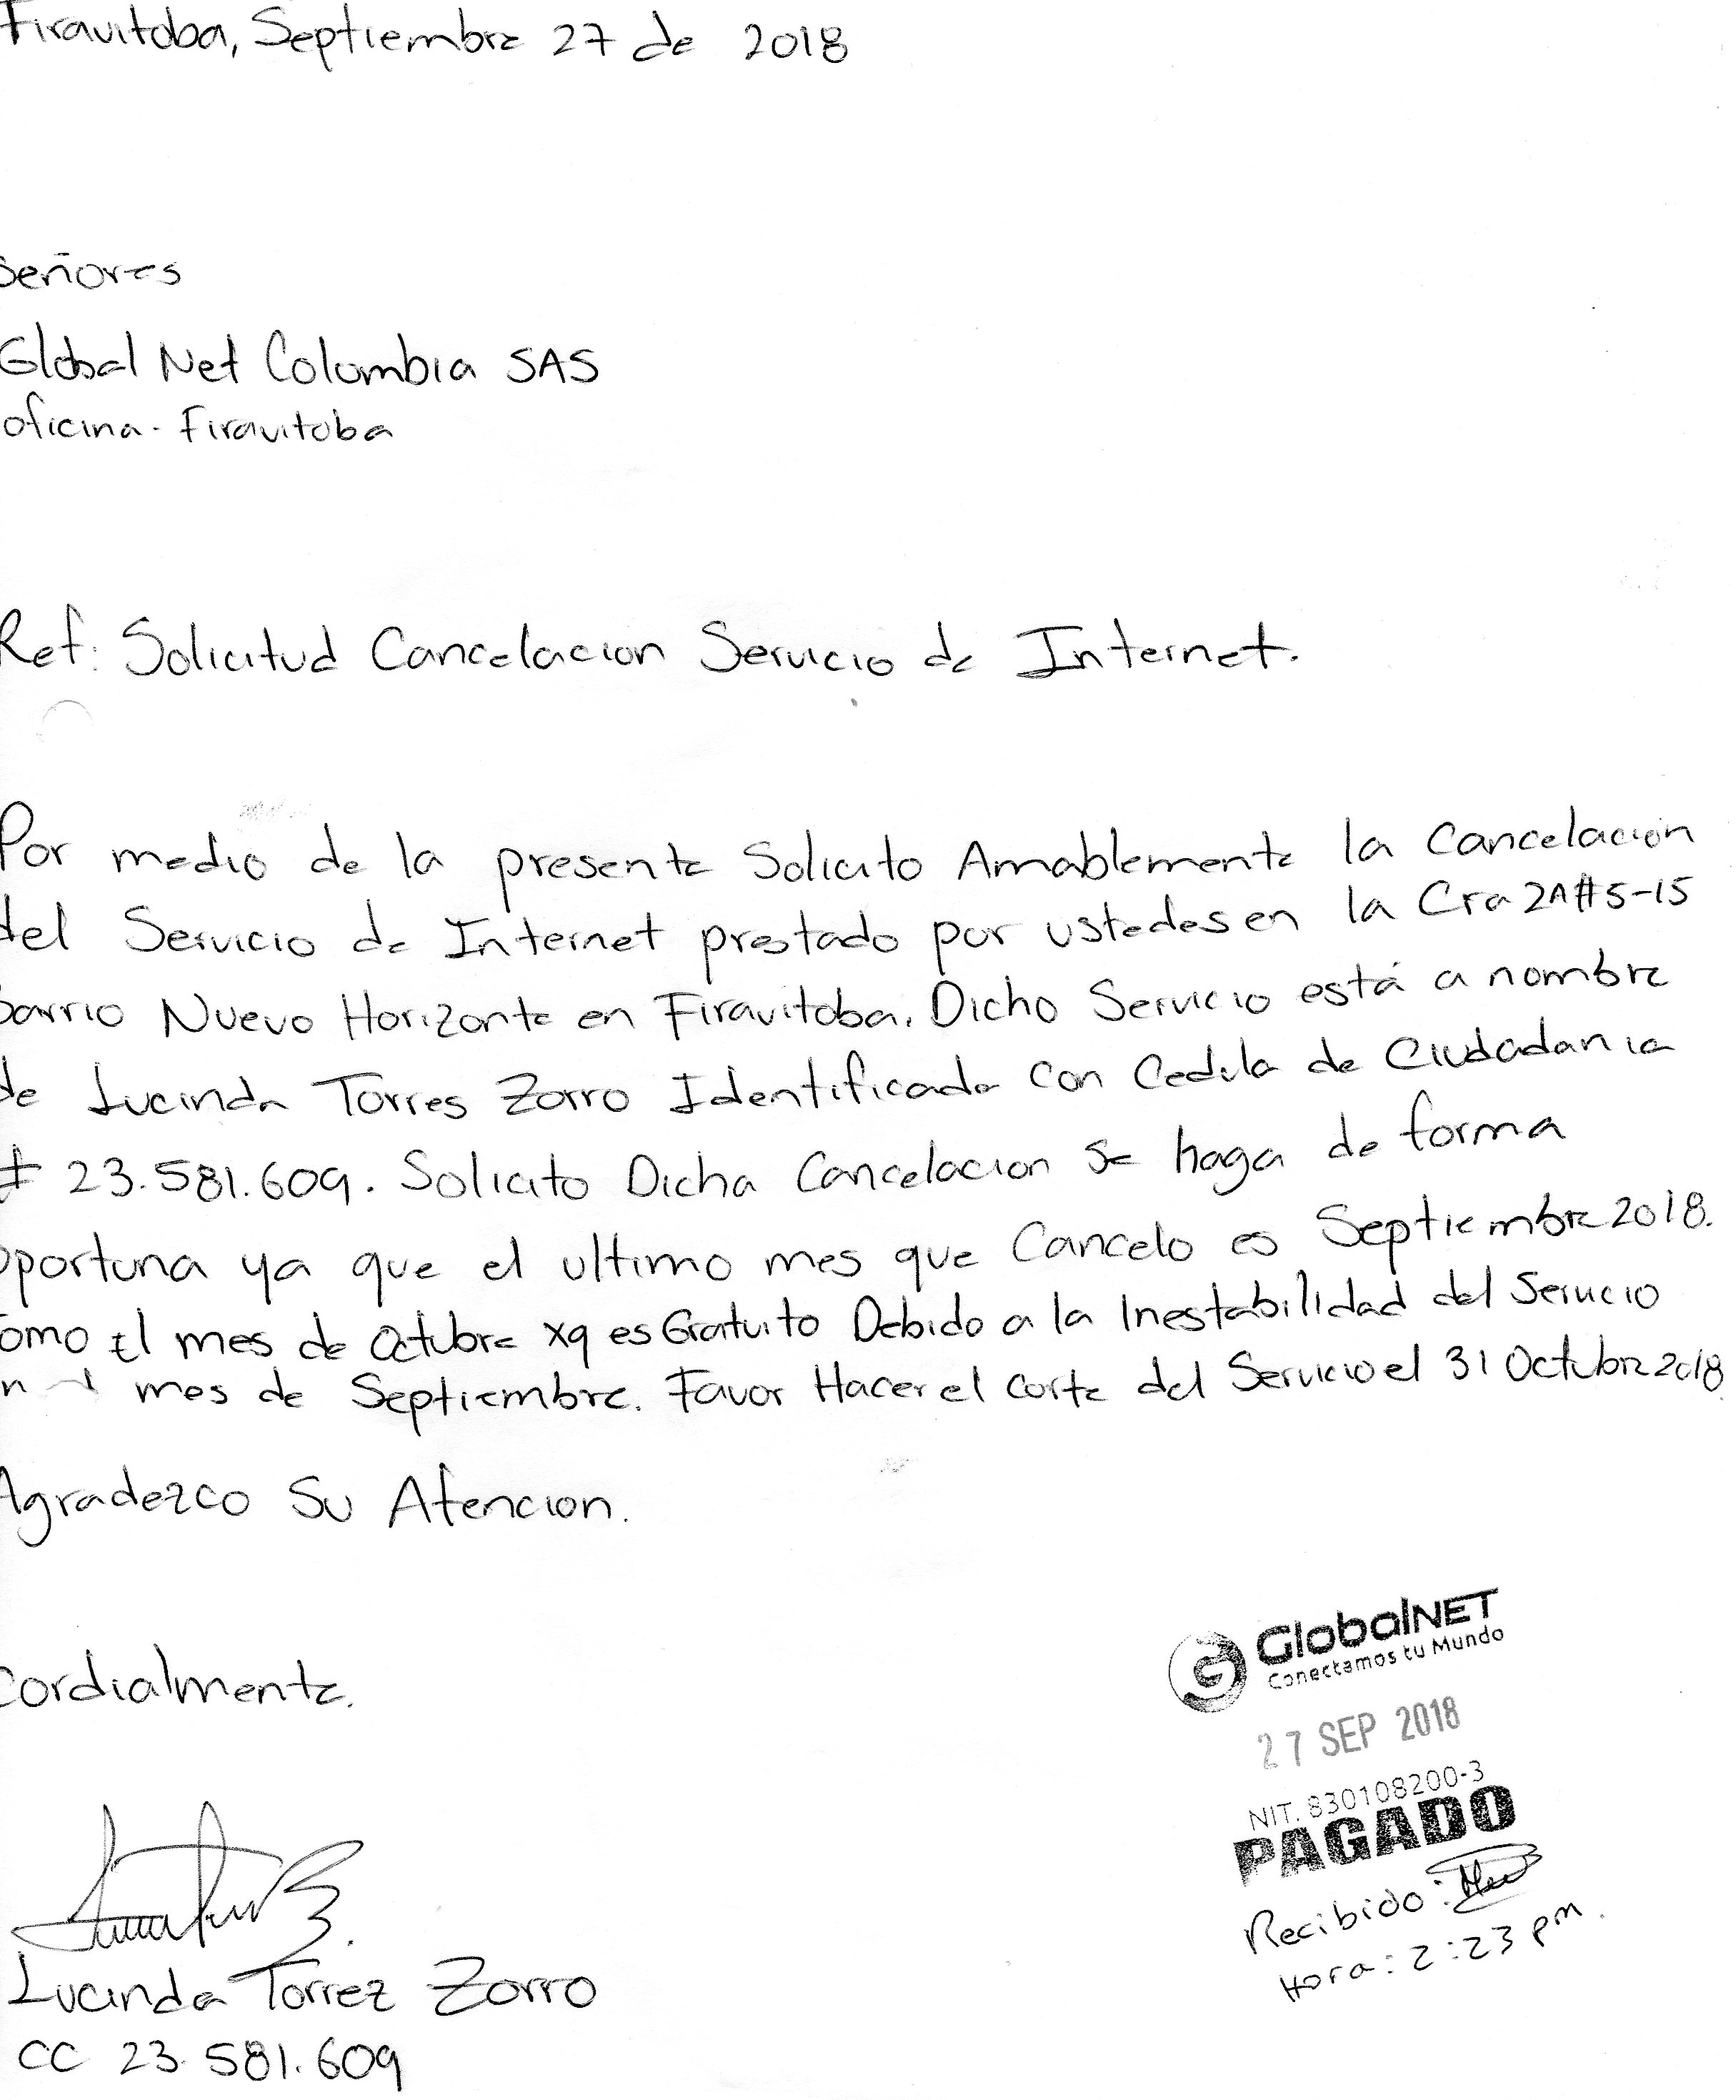 Firavitoba, Septiembre 27 de 2018
Señores
Global Net Colombia SAS
oficina - Firavitoba
Ref: Solicitud Cancelacion Servicio de Internet.
Por medio de la presente Solicito Amablemente la Cancelación
del Servicio de Internet prestado por ustedes en la Cra 2A#5-15
barrio Nuevo Horizonte en Firavitoba. Dicho Servicio está a nombre
de Lucinda Torres Zorro Identificada con Cedula de Ciudadania
# 23.581.609. Solicito Dicha Cancelacion se haga de forma
oportuna ya que el ultimo mes que Cancelo es Septiembre 2018.
Como El mes de Octubre xq es Gratuito Debido a la Inestabilidad del Servicio
mes de Septiembre. Favor Hacer el corte del Servicio el 31 Octubre 2018
Agradezco Su Atencion.
Cordialmente.
Lucinda Torrez Zorro
CC 23.581.609
GlobalNET
Conectamos tu Mundo
27 SEP 2018
NIT. 830108200-3
PAGADO
Recibido:
Hora: 2:23 pm.